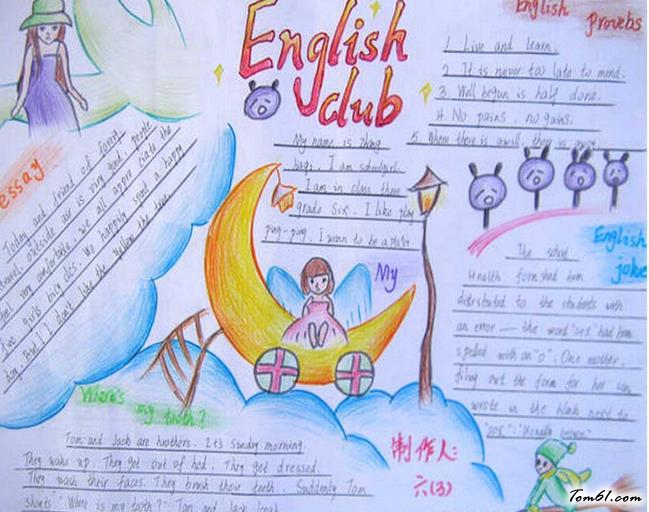 English
club
English
Proverbs
1. Live and learn.
2. It is never too late to mend.
3. Well begun is half done.
4. No pains, no gains.
5. Where there is a will, there is
essay
Today and friend of
travel, outside air is very and people
feel very comfortable, we all appre ciate the
two girls bicy cles. We happily spend a happy
day. But, I don't like the
My name is zhang
I am schoolgirl.
I am in class three
grade six. I like play
ping-pong. I wann to be a
My
English
joke
The school
Health form had been
distributed to the students with
an error — the word "sex" had been
spelled with an "o". One mother,
filling out the form for her son,
wrote in the blank next to
"sox": "Usually brown"
Where's
my tooth?
Tom and Jack are brothers. It's Sunday morning.
They wake up. They get out of bed. They get dressed.
They wash their faces. They brush their teeth. Suddenly Tom
shouts "Where is my tooth?" Tom and Jack look
制作人:
六(3)
Tom61.com